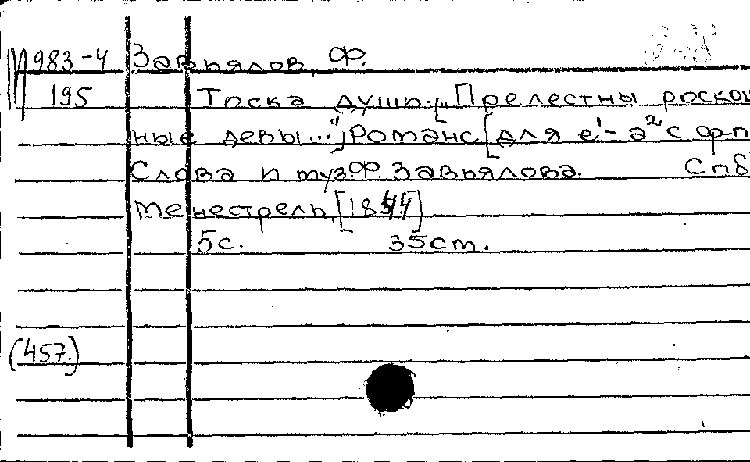 М983-4 Завьялов, Ф.
195 Тоска души. ["Прелестны роскош
ные девы..."] Романс [для e¹-a² с ф-п
Слова и муз. Ф. Завьялова. Спб
Менестрель, [1844]
5с. 35см.
(457)